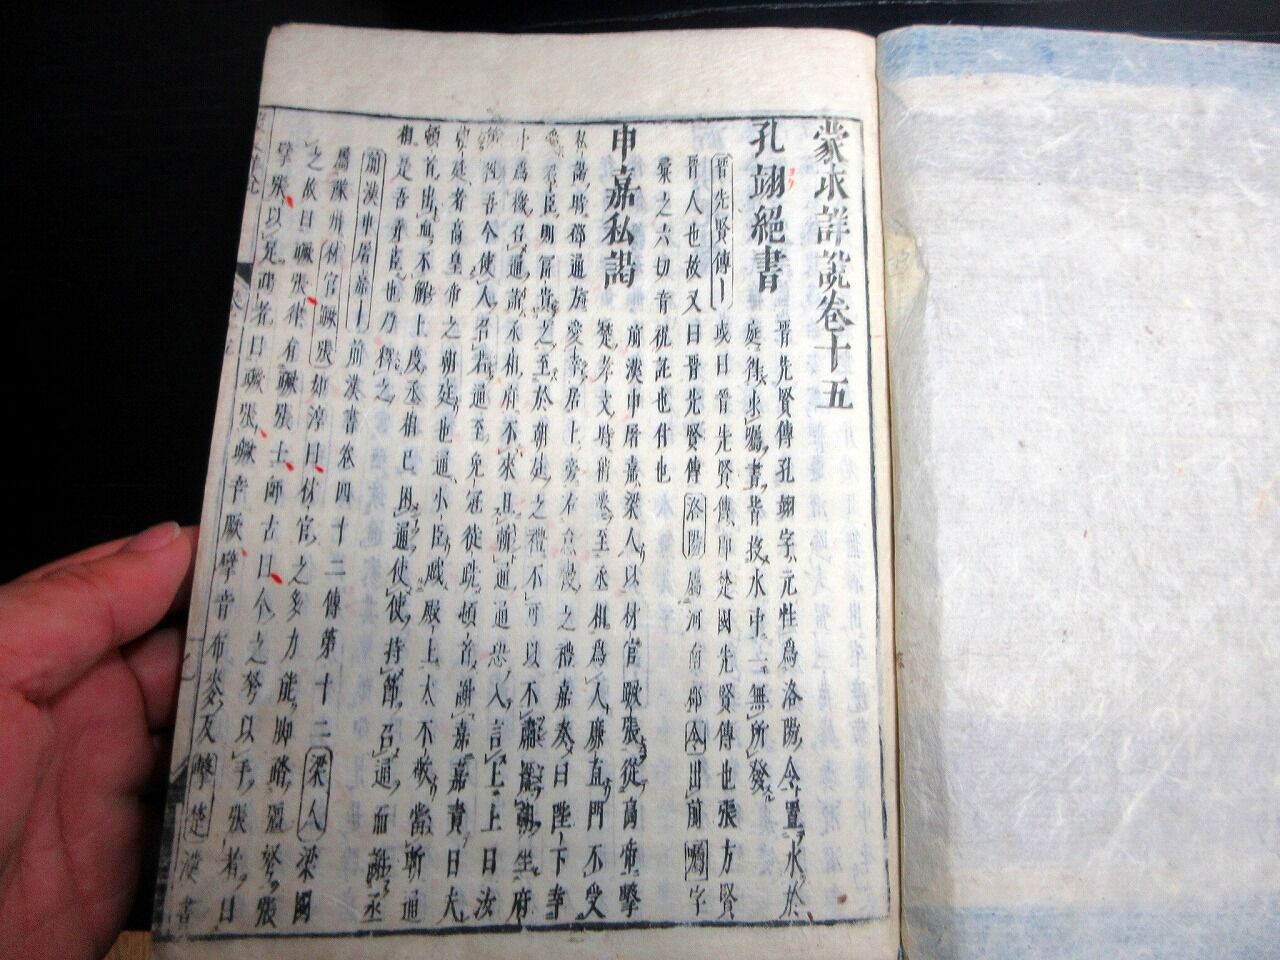 蒙求詳説卷十五
孔翊絕書
晋先賢傳孔翊字元性爲洛陽令置水於
庭得求囑書皆投水中一無所發
晋先賢傳 或曰晋先賢傳即楚國先賢傳也張方賢
晋人也故又曰晋先賢傳 洛陽 屬河南郡 令 出前 囑 字
彙之六切音祝託也付也
申嘉私謁
前漢申屠嘉梁人以材官蹶張從高帝擊
楚孝文時稍遷至丞相爲人廉直門不受
私謁時鄧通方愛幸居上旁有怠慢之禮嘉奏曰陛下幸
愛羣臣則富貴之至於朝廷之禮不可以不肅罷朝坐府
中爲檄召通詣丞相府不來且斬通通恐入言上上曰汝
徃吾令使人召若通至免冠徒跣頓首謝嘉嘉責曰夫
朝廷者高皇帝之朝廷也通小臣戲殿上大不敬當斬通
頓首出血不解上度丞相已困通使使持節召通而謝丞
相是吾弄臣也乃釋之
前漢申屠嘉 前漢書卷四十二傳第十二 梁人 梁國
屬豫州 材官蹶張 如淳曰材官之多力能脚踏彊弩張
之故曰蹶張律有蹶張士師古曰今之弩以手張者曰
擘張以足蹋者曰蹶張蹶音厥擘音布麥反 擊楚 漢書